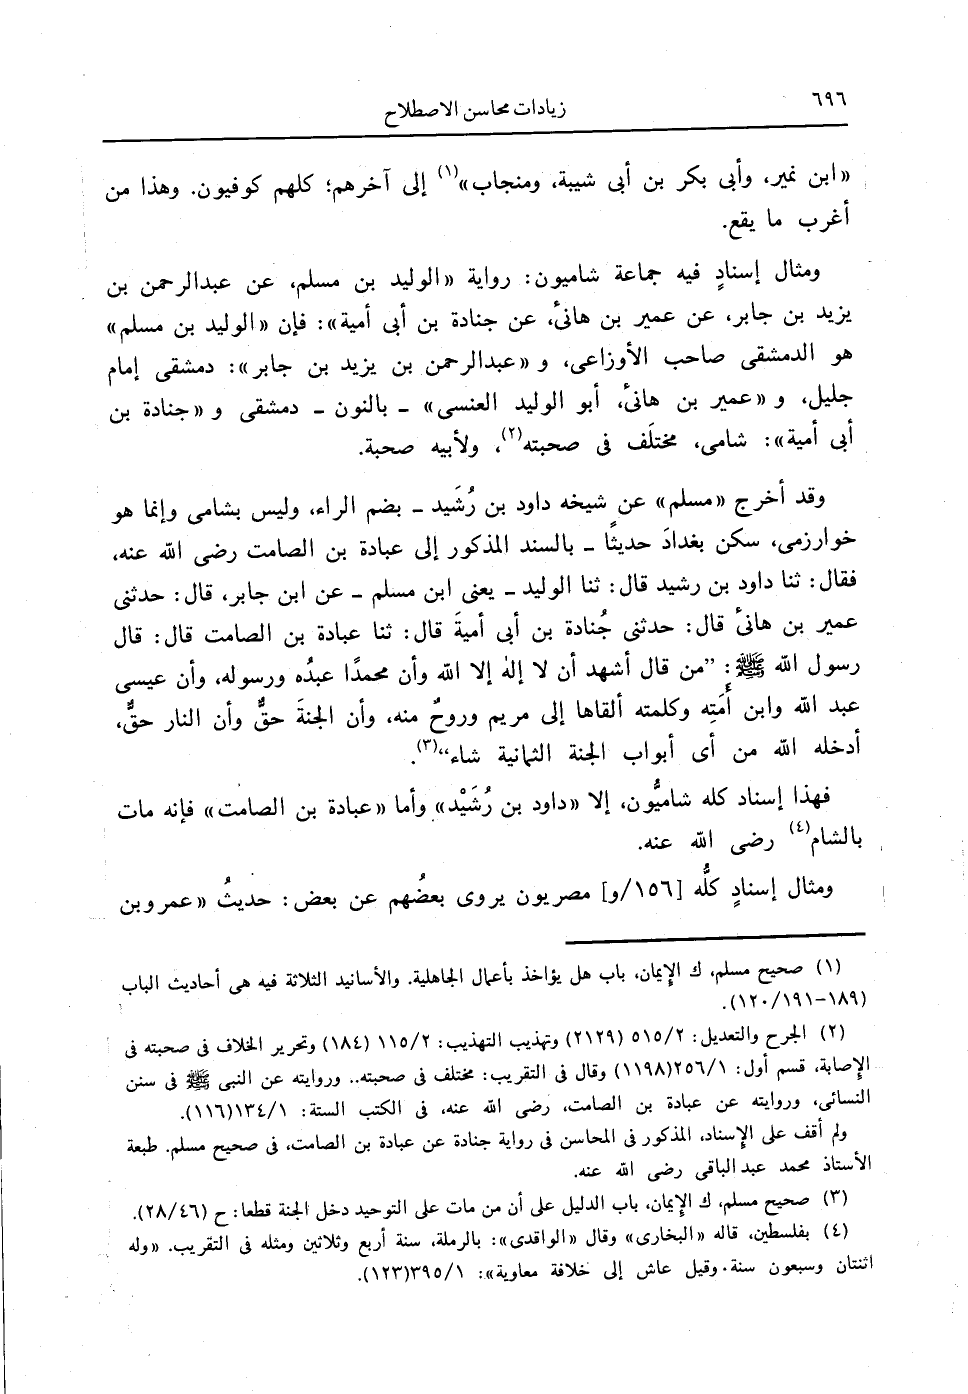 ٦٩٦
زيادات محاسن الاصطلاح
«ابن نمير، وأبى بكر بن أبى شيبة، ومنجاب»(١) إلى آخرهم؛ كلهم كوفيون. وهذا من
أغرب ما يقع.
ومثال إسنادٍ فيه جماعة شاميون: رواية «الوليد بن مسلم، عن عبدالرحمن بن
يزيد بن جابر، عن عمير بن هانئ، عن جنادة بن أبى أمية»: فإن «الوليد بن مسلم»
هو الدمشقى صاحب الأوزاعى، و «عبدالرحمن بن يزيد بن جابر»: دمشقى إمام
جليل، و «عمير بن هانئ، أبو الوليد العنسى» ــ بالنون ــ دمشقى و «جنادة بن
أبى أمية»: شامى، مختلَف فى صحبته(٢)، ولأبيه صحبة.
وقد أخرج «مسلم» عن شيخه داود بن رُشَيد ــ بضم الراء، وليس بشامى وإنما هو
خوارزمى، سكن بغدادَ حديثًا ــ بالسند المذكور إلى عبادة بن الصامت رضى الله عنه،
فقال: ثنا داود بن رشيد قال: ثنا الوليد ــ يعنى ابن مسلم ــ عن ابن جابر، قال: حدثنى
عمير بن هانئ قال: حدثنى جُنادة بن أبى أميةَ قال: ثنا عبادة بن الصامت قال: قال
رسول الله ﷺ: ”من قال أشهد أن لا إلهٰ إلا الله وأن محمدًا عبدُه ورسوله، وأن عيسى
عبد الله وابن أَمَتِه وكلمته ألقاها إلى مريم وروحٌ منه، وأن الجنةَ حقٌّ وأن النار حقٌّ،
أدخله الله من أى أبواب الجنة الثمانية شاء“(٣).
فهذا إسناد كله شاميُّون، إلا «داود بن رُشَيْد» وأما «عبادة بن الصامت» فإنه مات
بالشام(٤) رضى الله عنه.
ومثال إسنادٍ كلُّه [١٥٦/و] مصريون يروى بعضُهم عن بعض: حديثُ «عمرو بن
(١) صحيح مسلم، ك الإيمان، باب هل يؤاخذ بأعمال الجاهلية. والأسانيد الثلاثة فيه هى أحاديث الباب
(١٨٩-١٩١/ ١٢٠).
(٢) الجرح والتعديل: ٥١٥/٢ (٢١٢٩) وتهذيب التهذيب: ١١٥/٢ (١٨٤) وتحرير الخلاف فى صحبته فى
الإصابة، قسم أول: ٢٥٦/١ (١١٩٨) وقال فى التقريب: مختلف فى صحبته.. وروايته عن النبى ﷺ فى سنن
النسائى، وروايته عن عبادة بن الصامت، رضى الله عنه، فى الكتب الستة: ١٣٤/١ (١١٦).
ولم أقف على الإسناد، المذكور فى المحاسن فى رواية جنادة عن عبادة بن الصامت، فى صحيح مسلم. طبعة
الأستاذ محمد عبد الباقى رضى الله عنه.
(٣) صحيح مسلم، ك الإيمان، باب الدليل على أن من مات على التوحيد دخل الجنة قطعا: ح (٢٨/٤٦).
(٤) بفلسطين، قاله «البخارى» وقال «الواقدى»: بالرملة، سنة أربع وثلاثين ومثله فى التقريب. «وله
اثنتان وسبعون سنة. وقيل عاش إلى خلافة معاوية»: ٣٩٥/١ (١٢٣).